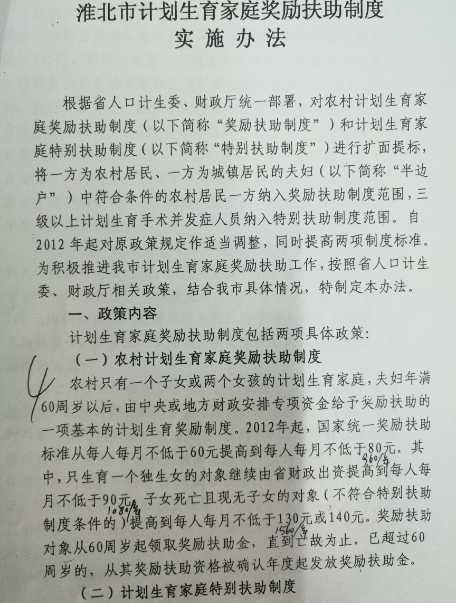 淮北市计划生育家庭奖励扶助制度
实施办法
根据省人口计生委、财政厅统一部署，对农村计划生育家
庭奖励扶助制度（以下简称“奖励扶助制度”）和计划生育
家庭特别扶助制度（以下简称“特别扶助制度”）进行扩面提标，
将一方为农村居民、一方为城镇居民的夫妇（以下简称“半边
户”）中符合条件的农村居民一方纳入奖励扶助制度范围，三
级以上计划生育手术并发症人员纳入特别扶助制度范围。自
2012年起对原政策规定作适当调整，同时提高两项制度标准。
为积极推进我市计划生育家庭奖励扶助工作，按照省人口计生
委、财政厅相关政策，结合我市具体情况，特制定本办法。
一、政策内容
计划生育家庭奖励扶助制度包括两项具体政策：
（一）农村计划生育家庭奖励扶助制度
农村只有一个子女或两个女孩的计划生育家庭，夫妇年满
60周岁以后，由中央或地方财政安排专项资金给予奖励扶助的
一项基本的计划生育奖励制度。2012年起，国家统一奖励扶助
标准从每人每月不低于60元提高到每人每月不低于80元。其
960/年
中，只生育一个独生女的对象继续由省财政出资提高到每人每
月不低于90元，子女死亡且现无子女的对象（不符合特别扶助
1080/年
制度条件的）提高到每人每月不低于130元或140元。奖励扶助
1560/年
对象从60周岁起领取奖励扶助金，直到亡故为止，已超过60
周岁的，从其奖励扶助资格被确认年度起发放奖励扶助金。
（二）计划生育家庭特别扶助制度